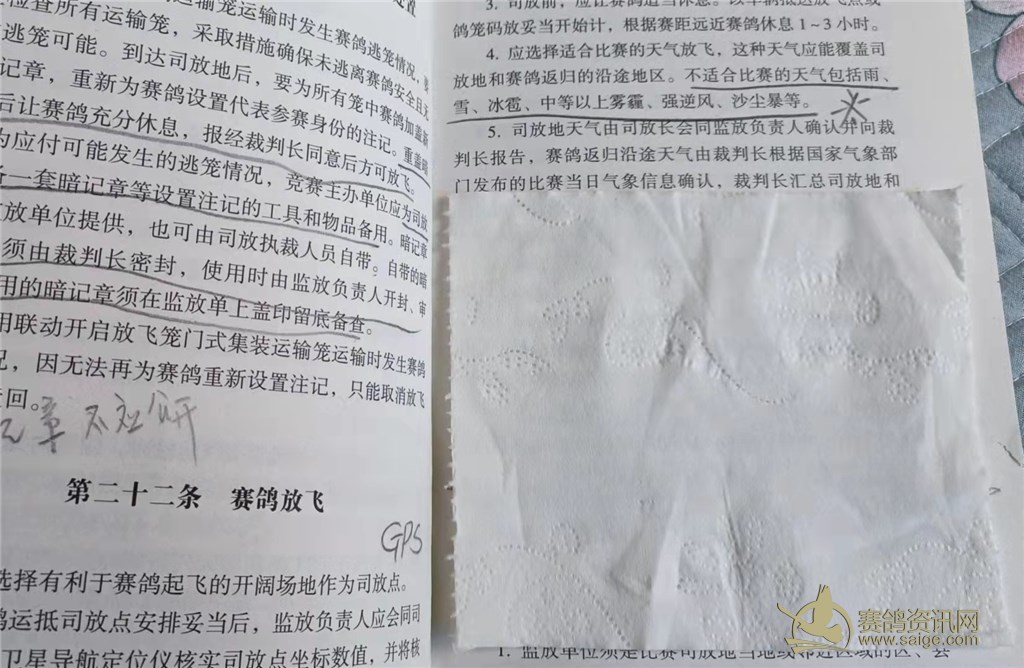 运输笼运输时发生赛鸽逃笼情况处置
检查所有运输笼，采取措施确保未逃离赛鸽安全且无
逃笼可能。到达司放地后，要为所有笼中赛鸽加盖新
记章，重新为赛鸽设置代表参赛身份的注记。重盖暗
后让赛鸽充分休息，报经裁判长同意后方可放飞。
为应付可能发生的逃笼情况，竞赛主办单位应为司放
一套暗记章等设置注记的工具和物品备用。暗记章
放单位提供，也可由司放执裁人员自带。自带的暗
须由裁判长密封，使用时由监放负责人开封、审
用的暗记章须在监放单上盖印留底备查。
用联动开启放飞笼门式集装运输笼运输时发生赛鸽
况，因无法再为赛鸽重新设置注记，只能取消放飞
回。
章 不
第二十二条 赛鸽放飞
GPS
选择有利于赛鸽起飞的开阔场地作为司放点。
运抵司放点安排妥当后，监放负责人应会同司
卫星导航定位仪核实司放点坐标数值，并将核
3. 司放前，应让赛鸽适当休息。以车辆抵达放飞点或
鸽笼码放妥当开始计，根据赛距远近赛鸽休息 1~3 小时。
4. 应选择适合比赛的天气放飞，这种天气应能覆盖司
放地和赛鸽返归的沿途地区。不适合比赛的天气包括雨、
雪、冰雹、中等以上雾霾、强逆风、沙尘暴等。
5. 司放地天气由司放长会同监放负责人确认并向裁
判长报告，赛鸽返归沿途天气由裁判长根据国家气象部
门发布的比赛当日气象信息确认，裁判长汇总司放地和
1. 监放单位须是比赛司放地当地或邻近区域的区、县
赛鸽资讯网
www.saige.com